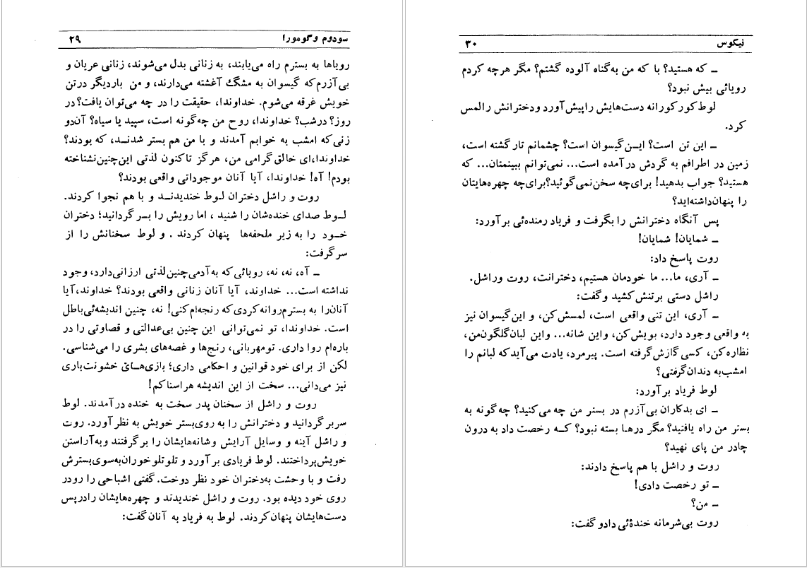 سودوم وگومورا ۲۹
رویاها به بسترم راه می‌یابند، به زنانی بدل می‌شوند، زنانی عریان و
بی‌آزرم که گیسوان به مشگ آغشته می‌دارند، و من باردیگر درتن
خویش غرقه می‌شوم. خداوندا، حقیقت را در چه می‌توان یافت؟ در
روز؟ درشب؟ خداوندا، روح من چه‌گونه است، سپید یا سیاه؟ آن‌دو
زنی‌که امشب به خوابم آمدند و با من هم بستر شدند، که بودند؟
خداوندا، ای خالق گرامی من، هرگز تاکنون لذتی این‌چنین نشناخته
بودم! آه! خداوندا، آیا آنان موجوداتی واقعی بودند؟
روت و راشل دختران لوط خندیدند و با هم نجوا کردند.
لوط صدای خنده‌شان را شنید، اما رویش را بسر گردانید؛ دختران
خود را به زیر ملحفه‌ها پنهان کردند. و لوط سخنانش را از
سرگرفت:
ــ آه، نه، نه، رویائی‌که به‌آدمی‌چنین لذتی ارزانی‌دارد، وجود
نداشته است... خداوند، آیا آنان زنانی واقعی بودند؟ خداوند، آیا
آنان‌را به بسترم‌روانه کردی‌که رنجه‌ام‌کنی! نه، چنین اندیشه‌ئی‌باطل
است. خداوندا، تو نمی‌توانی این چنین بی‌عدالتی و قصاوتی را در
باره‌ام روا داری. تومهربانی، رنج‌ها و غصه‌های بشری را می‌شناسی.
لکن از برای خود قوانین و احکامی داری؛ بازی‌های خشونت‌باری
نیز می‌دانی... سخت از این اندیشه هراسناکم!
روت و راشل از سخنان پدر سخت به خنده درآمدند. لوط
سربرگردانید و دخترانش را به روی‌بستر خویش به نظر آورد. روت
و راشل آینه و وسایل آرایش وشانه‌هایشان را برگرفتند و به‌آراستن
خویش‌پرداختند. لوط فریادی برآورد و تلوتلوخوران به‌سوی‌بسترش
رفت و با وحشت به‌دختران خود نظر دوخت. گفتی اشباحی را رودر
روی خود دیده بود. روت و راشل خندیدند و چهره‌هایشان رادرپس
دست‌هایشان پنهان‌کردند. لوط به فریاد به آنان گفت:
نیکوس ۳۰
ــ که هستید؟ با که من به‌گناه آلوده گشتم؟ مگر هرچه کردم
رویائی بیش نبود؟
لوط کورکورانه دست‌هایش راپیش‌آورد ودخترانش رالمس
کرد.
ــ این تن است؟ این‌گیسوان است؟ چشمانم تارگشته است،
زمین در اطرافم به گردش درآمده است... نمی‌توانم ببینمتان... که
هستید؟ جواب بدهید! برای‌چه سخن‌نمی‌گوئید؟ برای‌چه چهره‌هایتان
را پنهان‌داشته‌اید؟
پس آنگاه دخترانش را بگرفت و فریاد رمنده‌ئی برآورد:
ــ شمایان! شمایان!
روت پاسخ داد:
ــ آری، ما... ما خودمان هستیم، دخترانت، روت وراشل.
راشل دستی برتنش کشید وگفت:
ــ آری، این تنی واقعی است، لمسش کن، و این‌گیسوان نیز
به واقعی وجود دارد، بویش‌کن، واین شانه... واین لبان‌گلگون‌من،
نظاره‌کن، کسی گازش‌گرفته است. پیرمرد، یادت می‌آیدکه لبانم را
امشب‌به دندان‌گرفتی؟
لوط فریاد برآورد:
ــ ای بدکاران بی‌آزرم در بستر من چه می‌کنید؟ چه‌گونه به
بستر من راه یافتید؟ مگر درها بسته نبود؟ که رخصت داد به درون
چادر من پای نهید؟
روت و راشل با هم پاسخ دادند:
ــ تو رخصت دادی!
ــ من؟
روت بی‌شرمانه خنده‌ئی دادو گفت: